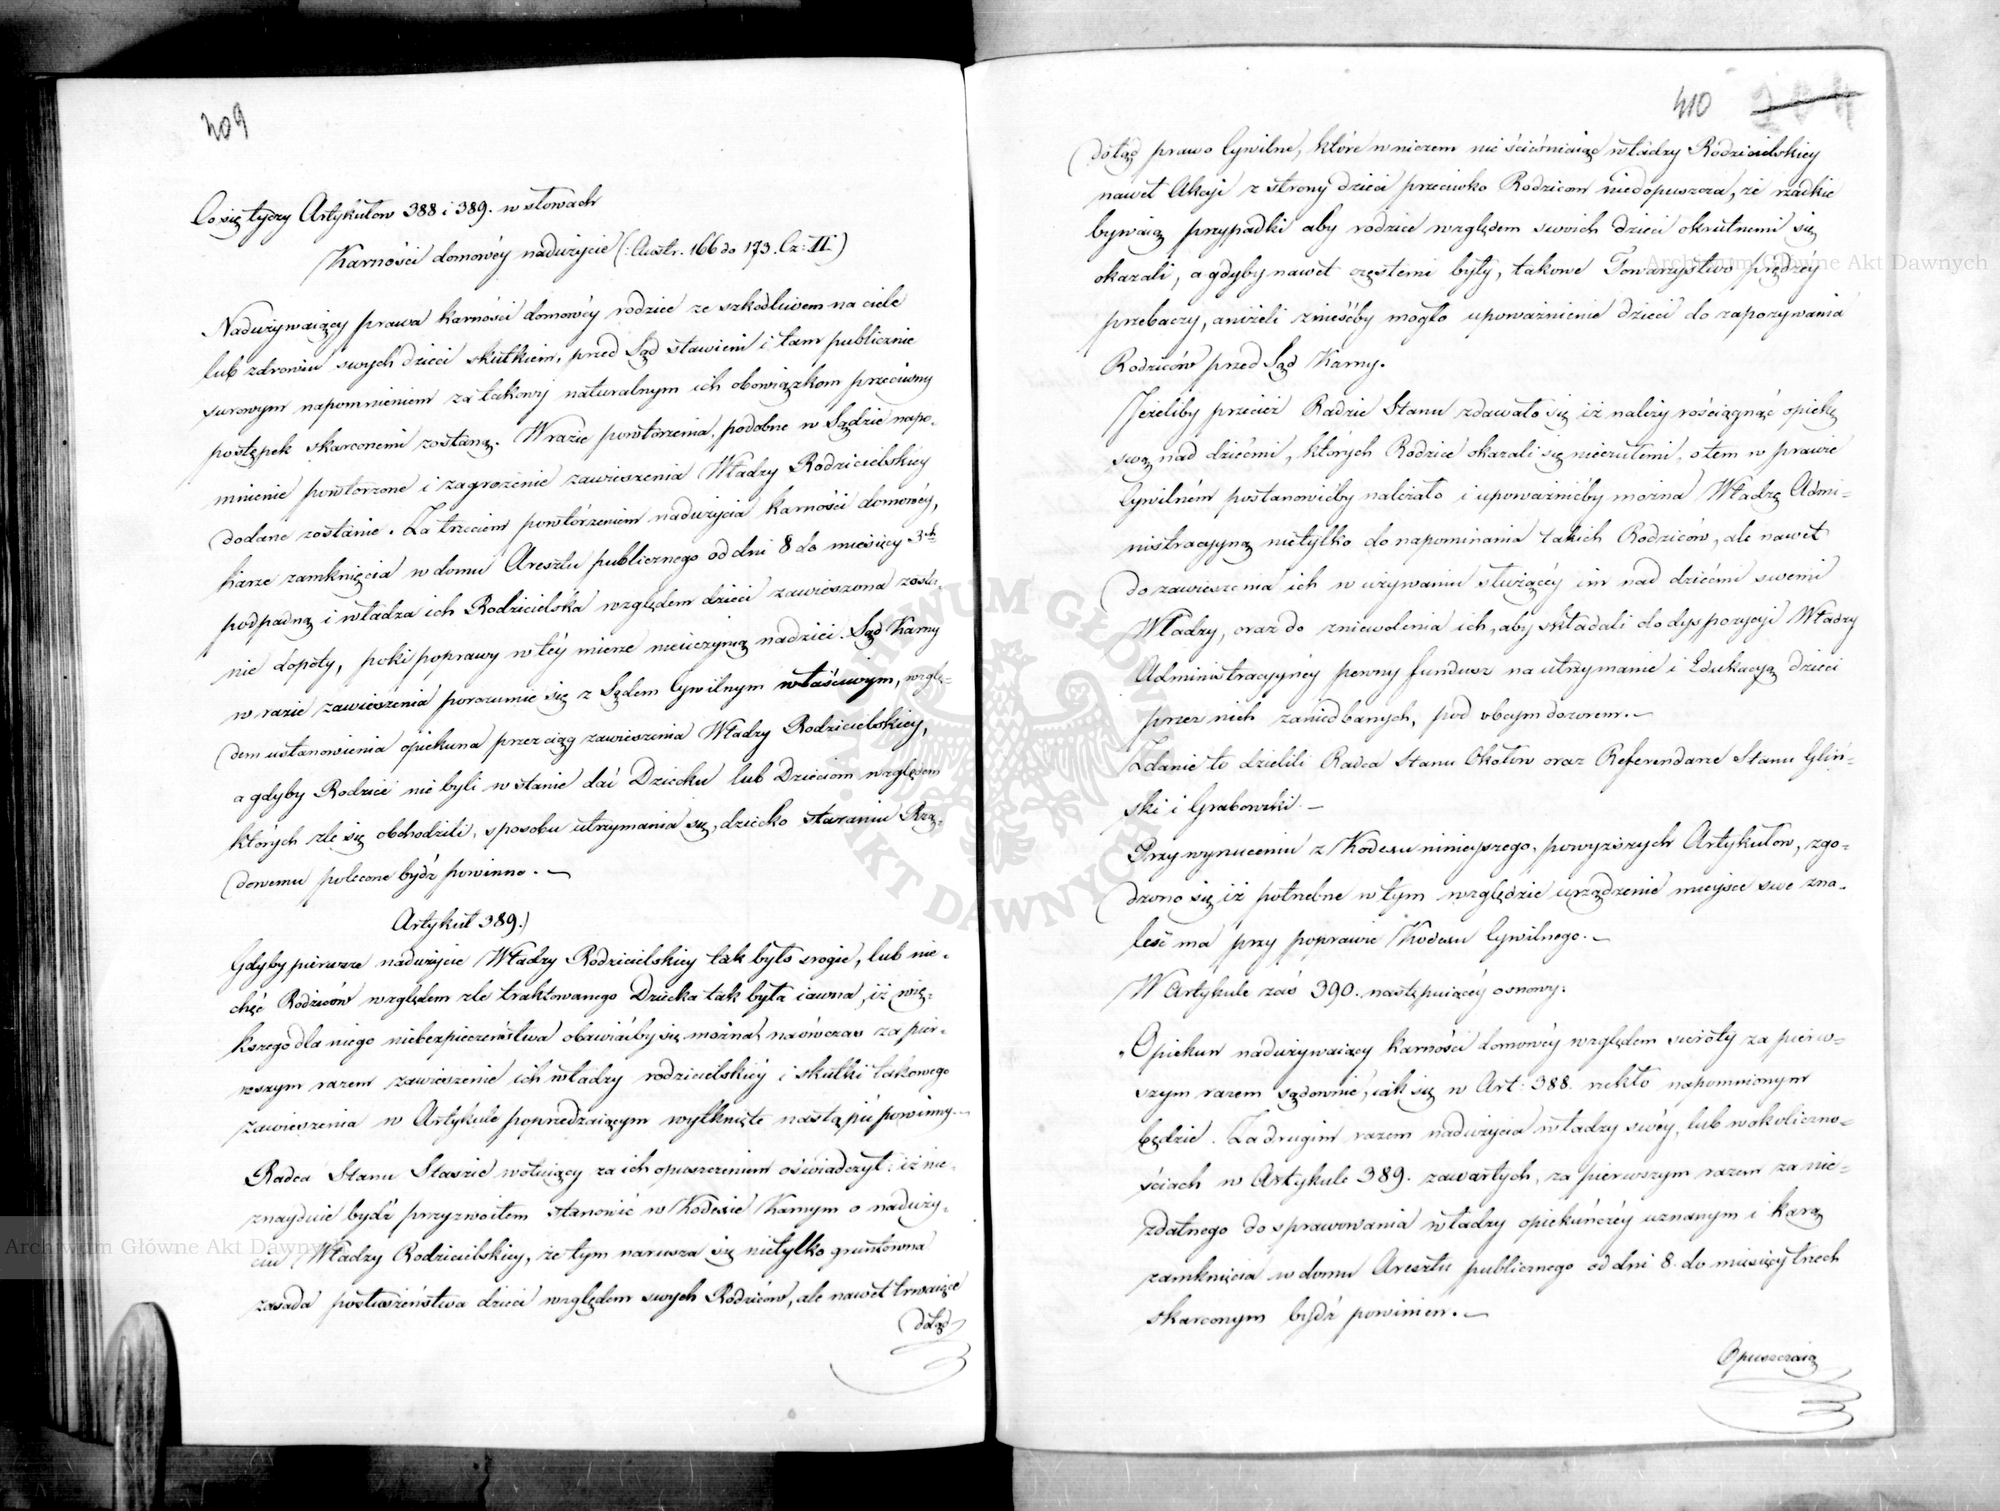 409
Co się tyczy Artykułow 388 i 389. w słowach
Karności domowéy nadużycie (: Austr. 166 do 173. Cz: II :)
Nadużywaiący prawa karności domowéy rodzice ze szkodliwem na ciele
lub zdrowiu swych dzieci skutkiem, przed Sąd stawieni i tam publicznie
surowym napomnieniem za takowy naturalnym ich obowiązkom przeciwny
postępek skarconemi zostaną. W razie powtorzenia, podobne w Sądzie napo-
mnienie powtorzone i zagrożenie zawieszenia Władzy Rodzicielskiey
dodane zostanie. Za trzeciem powtórzeniem nadużycia karności domowéy,
karze zamknięcia w domu Aresztu publicznego od dni 8 do miesięcy 3ch
podpadną i władza ich Rodzicielska względem dzieci zawieszona zosta-
nie dopóty, póki poprawy w téy mierze nieuczynią nadziei. Sąd Karny
w razie zawieszenia porozumie się z Sądem Cywilnym właściwym, wzglę-
dem ustanowienia opiekuna przez ciąg zawieszenia Władzy Rodzicielskiey,
a gdyby Rodzice nie byli w stanie dać Dziecku lub Dzieciom względem
których źle się obchodzili, sposobu utrzymania się, dziecko staraniu Rzą-
dowemu polecone bydź powinno. —
Artykuł 389.)
Gdyby pierwsze nadużycie Władzy Rodzicielskiey tak było srogie, lub nie-
chęć Rodziców względem źle traktowanego Dziecka tak była iawna, iż wię-
kszego dla niego niebezpieczeństwa obawiaćby się można, naówczas za pier-
wszym razem zawieszenie ich władzy rodzicielskiéy i skutki takowego
zawieszenia w Artykule poprzedzaiącym wytknięte nastąpić powinny. —
Radca Stanu Staszic wotuiący za ich opuszczeniem oświadczył: iż nie-
znayduie bydź przyzwoitem stanowić w Kodexie Karnym o naduży-
ciu Władzy Rodzicielskiey, że tym narusza się nietylko gruntowna
zasada posłuszeństwa dzieci względem swych Rodziców, ale nawet trwaiące
dotąd
410
dotąd prawo Cywilne, które w niczem nie ścieśniaiąc władzy Rodzicielskiey
nawet Akcji z strony dzieci przeciwko Rodzicom niedopuszcza, że rzadkie
bywaią przypadki aby rodzice względem swoich dzieci okrutnemi się
okazali, a gdyby nawet częstemi były, takowe Towarzystwo prędzéy
przebaczy, aniżeli znieśćby mogło upoważnienie dzieci do zapozywania
Rodziców przed Sąd Karny.
Jeżeliby przecież Radzie Stanu zdawało się iż należy rościągnąć opiekę
swą nad dziećmi, których Rodzice okazali się nieczułemi, o tem w prawie
Cywilném postanowićby należało i upoważnićby można Władzę Admi-
nistracyyną nietylko do napominania takich Rodziców, ale nawet
do zawieszenia ich w używaniu służącéy im nad dziećmi swemi
Władzy, oraz do zniewolenia ich, aby składali do dyspozycyi Władzy
Administracyynéy pewny fundusz na utrzymanie i Edukacyą dzieci
przez nich zaniedbanych, pod obcym dozorem. —
Zdanie to dzielili Radca Stanu Okołow oraz Referendarze Stanu Gliń-
ski i Grabowski. —
Przy wyrzuceniu z Kodexu niniejszego, powyższych Artykułow, zgo-
dzono się iż potrzebne w tym względzie urządzenie mieysce swe zna-
leść ma przy poprawie Kodexu Cywilnego. —
W Artykule zaś 390. następuiącéy osnowy:
„Opiekun nadużywaiący karności domowéy względem sieroty za pierw-
szym razem sądownie, iak się w Art: 388. rzekło napomnionym
będzie. Za drugim razem nadużycia władzy swéy, lub w okoliczno-
ściach w Artykule 389. zawartych, za pierwszym razem za nie-
zdatnego do sprawowania władzy opiekuńczéy uznanym i karą
zamknięcia w domu Aresztu publicznego od dni 8. do miesięcy trzech
skarconym bydź powinien. —
Opuszczaią
Archiwum Główne Akt Dawnych
Archiwum Główne Akt Dawnych
ARCHIWUM GŁÓWNE AKT DAWNYCH